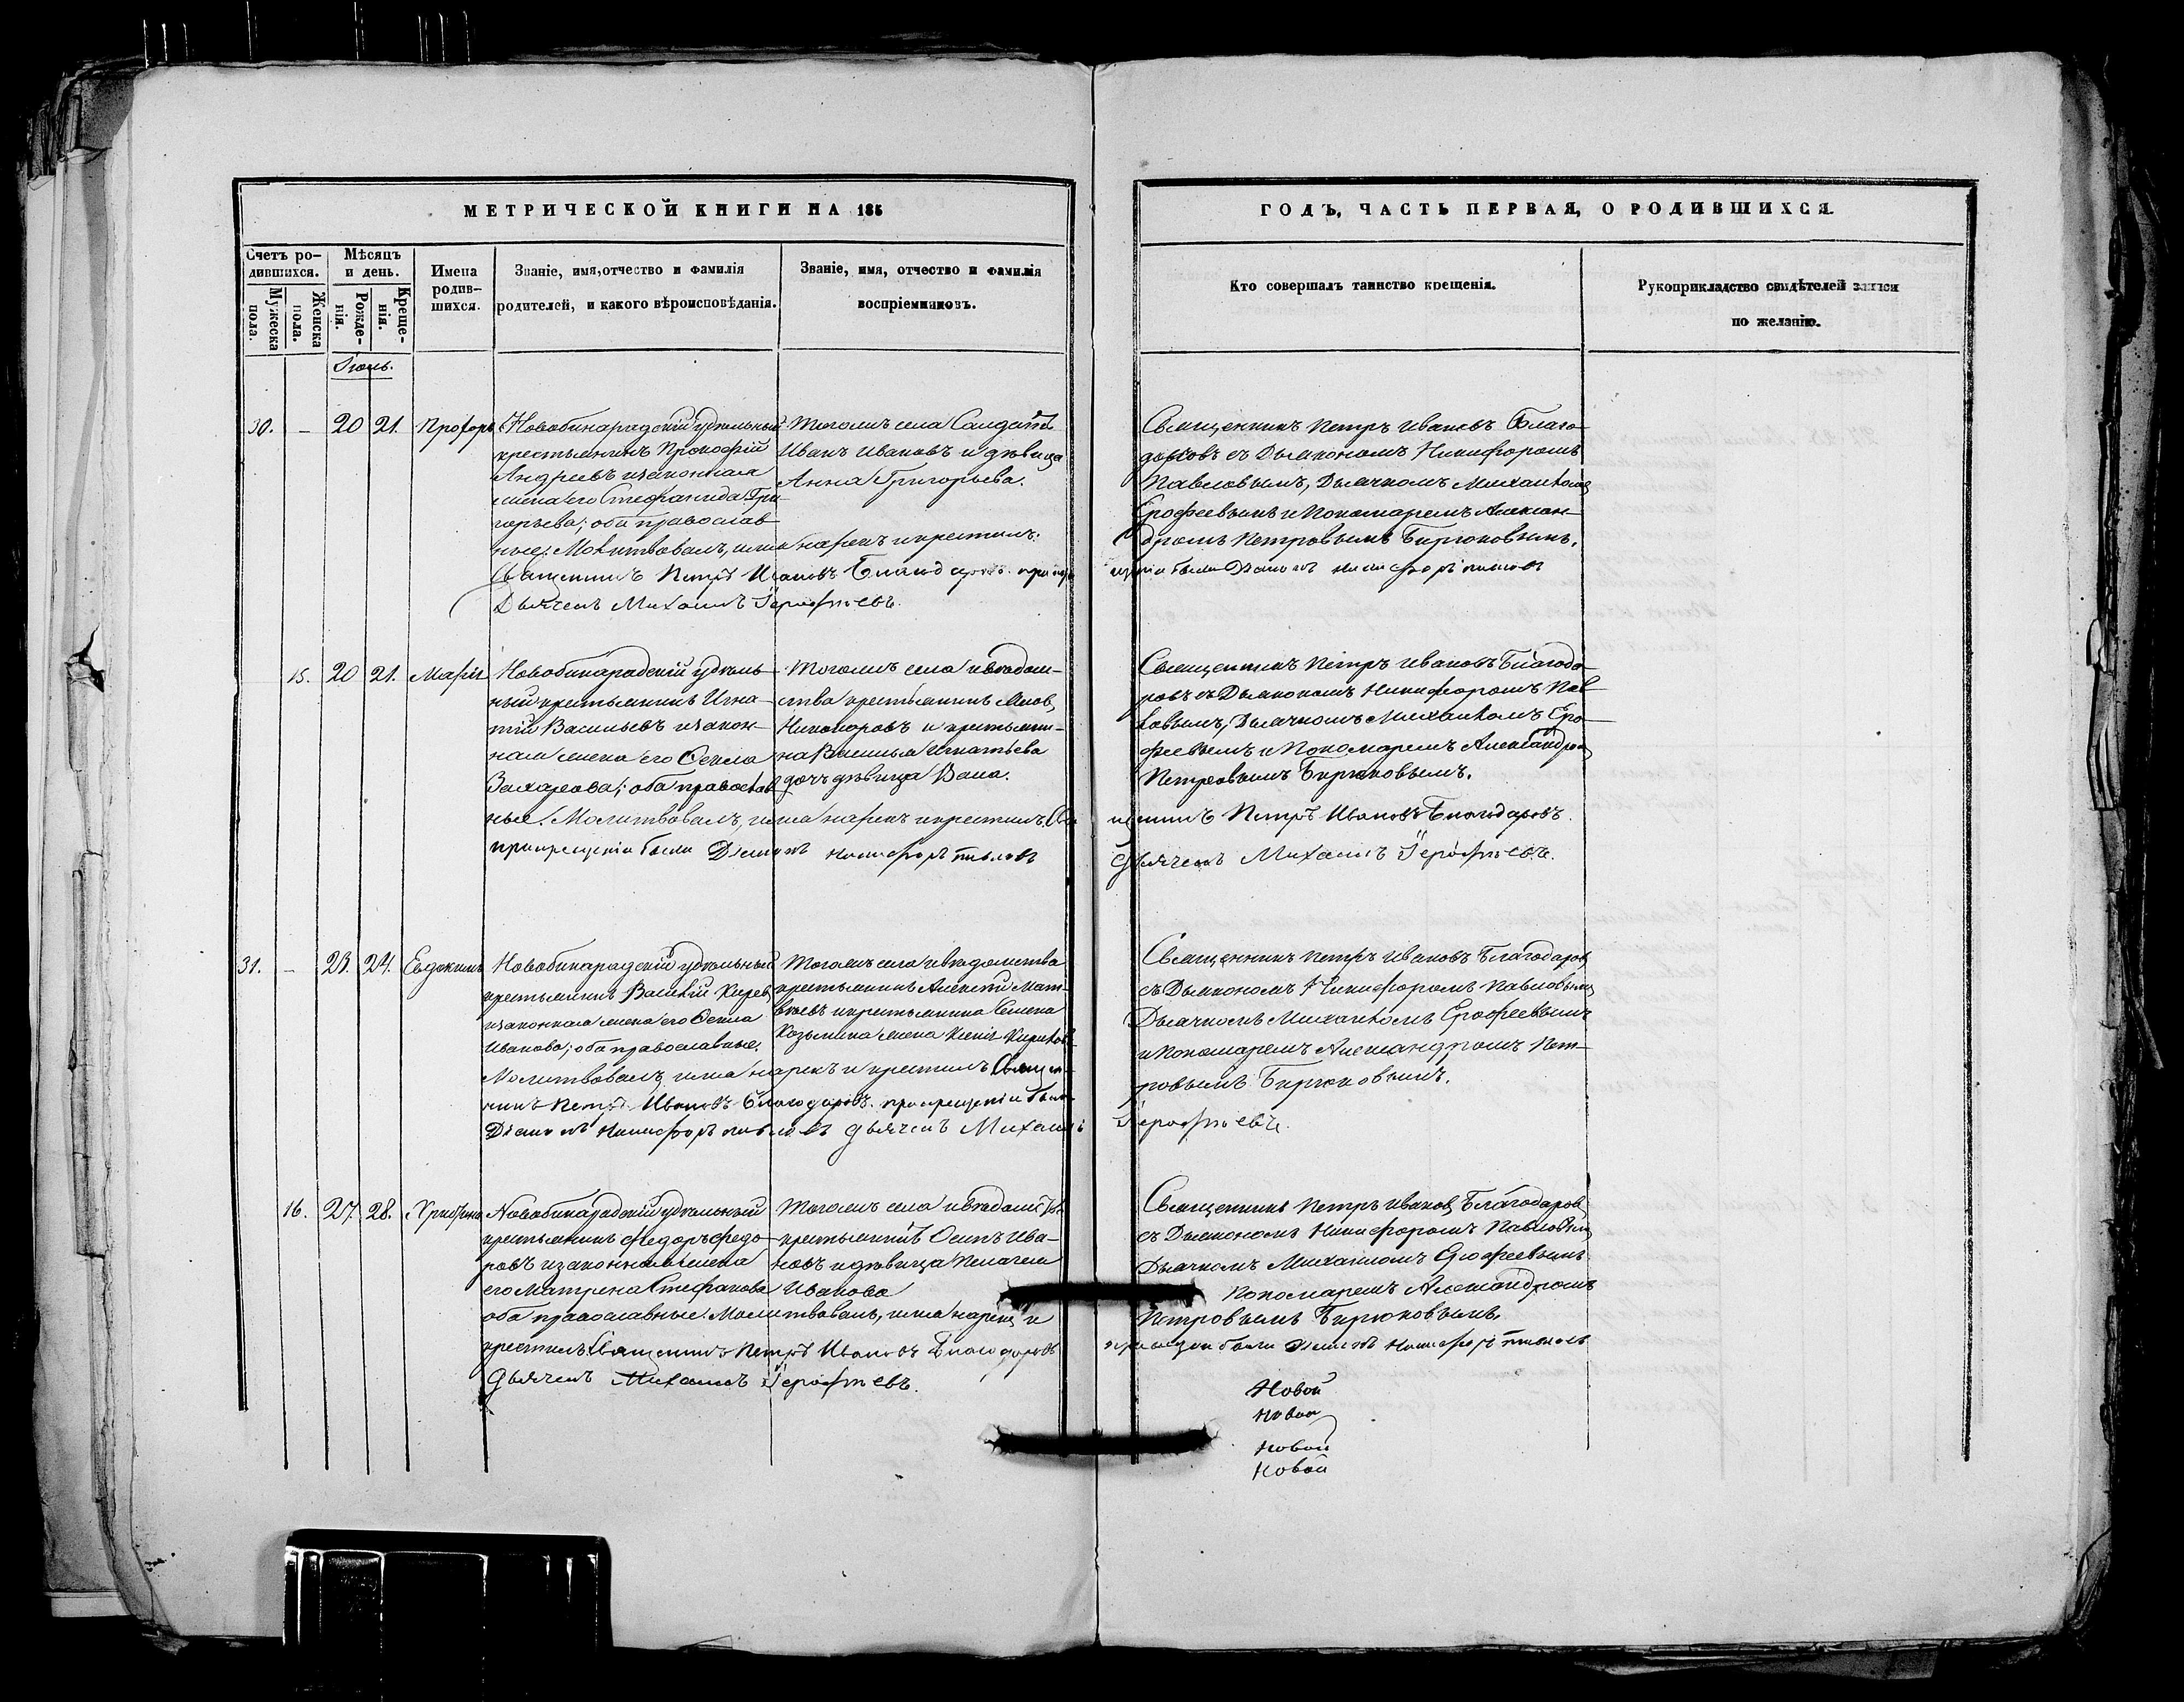 МЕТРИЧЕСКОЙ КНИГИ НА 185
Счетъ ро-
дившихся.
Мужеска пола.
Женска пола.
Мѣсяцъ
и день.
Рожде-
нія.
Креще-
нія.
Имена
родив-
шихся.
Званіе, имя, отчество и фамилія
родителей, и какого вѣроисповѣданія.
Званіе, имя, отчество и фамилія
воспріемниковъ.
Іюль.
30. – 20 21. Прохоръ
Новобинарадскій удѣльный
крестьянинъ Прокофій
Андреевъ и законная
жена его Стефанида Гри-
горьева; оба православ-
ные. Молитвовалъ, имя нарекъ и крестилъ.
Священникъ Петръ Ивановъ Благодаровъ. при кре
Дьячекъ Михаилъ Іерофѣевъ.
Тогожъ села Салдатъ
Иванъ Ивановъ и дѣвица
Анна Григорьева.
15. 20 21. Марія
Новобинарадскій удѣль-
ный крестьянинъ Игна-
тій Васильевъ и закон-
ная жена его Фекла
Захарова; оба православ
ные. Молитвовалъ, имя нарекъ и крестилъ. Свя
при крещеніи были Діаконъ Никифоръ Павловъ
Тогожъ села и вѣдом-
ства крестьянинъ Іаковъ
Никаноровъ и крестьяни-
на Василья Игнатьева
дочь дѣвица
31. – 23. 24. Евдокимъ
Новобинарадскій удѣльный
крестьянинъ Василій Киреев
и законная жена его Фекла
Иванова; оба православные.
Молитвовалъ, имя нарекъ и крестилъ Священ-
никъ Петръ Ивановъ Благодаровъ. при крещеніи были
Діаконъ Никифоръ Павловъ дьячекъ Михаилъ
Тогожъ села и вѣдомства
крестьянинъ Алексѣй Мат-
вѣевъ и крестьянина Семена
Козьмина жена Ксенія Кирилов-
16. 27. 28. Христина
Новобинарадскій удѣльный
крестьянинъ Федоръ Федо-
ровъ и законная жена
его Матрена Стефанова
оба православные. Молитвовалъ, имя нарекъ и
крестилъ Священникъ Петръ Ивановъ Благодаровъ
Дьячекъ Михаилъ Іерофѣевъ.
Тогожъ села и вѣдомства
крестьянинъ Осипъ Ива-
новъ и дѣвица Пелагея
Иванова
ГОДЪ, ЧАСТЬ ПЕРВАЯ, О РОДИВШИХСЯ.
Кто совершалъ таинство крещенія.
Рукоприкладство свидѣтелей записи
по желанію.
Священникъ Петръ Ивановъ Благо-
даровъ съ Дьякономъ Никифоромъ
Павловымъ, Дьячкомъ Михаиломъ
Ерофеевымъ и Пономаремъ Алексан-
дромъ Петровымъ Бирюковымъ.
щеніи были Діаконъ Никифоръ Павловъ
Священникъ Петръ Ивановъ Благода-
ровъ съ Дьякономъ Никифоромъ Пав-
ловымъ, Дьячкомъ Михаиломъ Еро-
феевымъ и Пономаремъ Александром
Петровымъ Бирюковымъ.
щенникъ Петръ Ивановъ Благодаровъ.
Дьячекъ Михаилъ Іерофѣевъ.
Священникъ Петръ Ивановъ Благодаровъ
съ Дьякономъ Никифоромъ Павловымъ
Дьячкомъ Михаиломъ Ерофеевымъ
и Пономаремъ Александромъ Пет-
ровымъ Бирюковымъ.
Іерофѣевъ.
Священникъ Петръ Ивановъ Благодаровъ
съ Дьякономъ Никифоромъ Павловым
Дьячкомъ Михаиломъ Ерофеевымъ
Пономаремъ Александромъ
Петровымъ Бирюковымъ.
были Діаконъ Никифоръ Павловъ
Новой
Новой
Новой
Новой